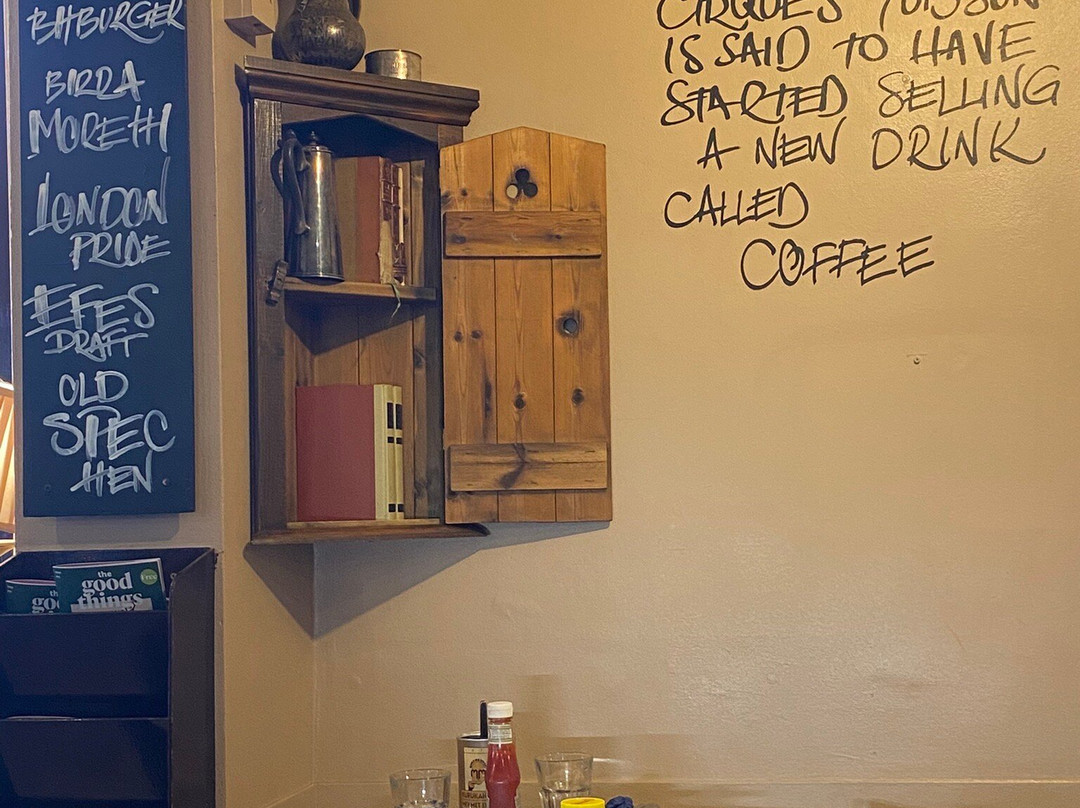 BITBURGER
BIRRA
MORETTI
LONDON
PRIDE
EFES
DRAFT
OLD
SPEC
HEN
IS SAID TO HAVE
STARTED SELLING
A NEW DRINK
CALLED
COFFEE
the
good
things
Free
go